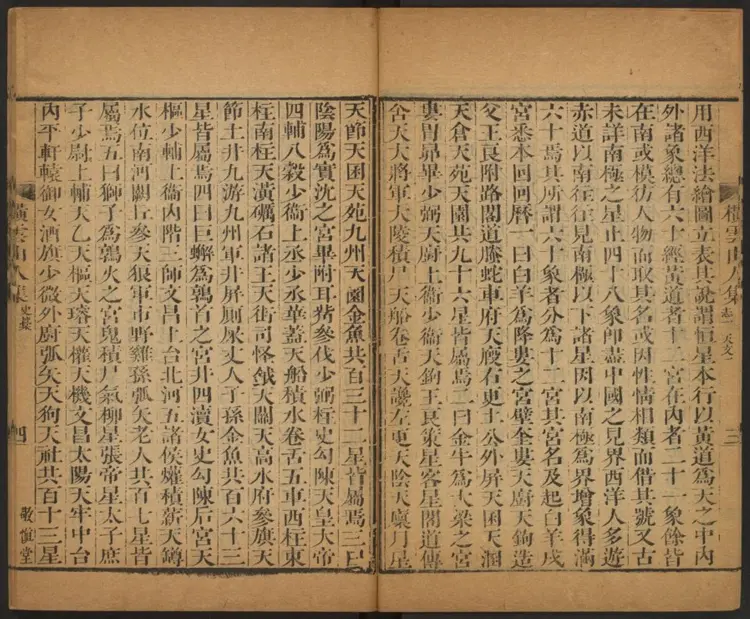 用西洋法繪圖立表其說謂恒星本行以黃道為天之中內
外諸象總有六十經黃道者十二宮在內者二十一象餘皆
在南或模彷人物而取其名或因性情相類而借其號又古
未詳南極之星止四十八象即盡中國之見界西洋人多遊
赤道以南往往見南極以下諸星因以南極為界增象得滿
六十焉其所謂六十象者分為十二宮其宮名及起白羊戌
宮悉本回回曆一曰白羊為降婁之宮壁奎婁天廚天鉤造
父王良附路閣道螣蛇車府天廄右更土公外屏天囷天溷
天倉天苑天園共九十六星皆屬焉二曰金牛為大梁之宮
婁胃昴畢少弼天廚上衞天鉤王良策星客星閣道傳
舍天大將軍大陵積尸天船卷舌天讒左更天陰天廩月星
橫雲山人集
志一 天文一
三
天節天囷天苑九州天園金魚共百三十二星皆屬焉三曰
陰陽為實沈之宮畢附耳觜參伐少弼柱史勾陳天皇大帝
四輔八穀少衞上丞少丞華蓋天船積水卷舌五車西柱東
柱南柱天潢礪石諸王天街司怪鉞天關天高水府參旗天
節土井九游九州軍井屏廁屎丈人子孫金魚共百六十三
星皆屬焉四曰巨蠏為鶉首之宮井四瀆女史勾陳后宮天
樞少輔上衞內階三師文昌上台北河五諸侯爟積薪天罇
水位南河闕丘參天狼軍市野雞孫弧矢老人共百七星皆
屬焉五曰獅子為鶉火之宮鬼積尸氣柳星張帝星太子庶
子少尉上輔天乙天樞天璿天權天機文昌太陽天牢中台
內平軒轅御女酒旗少微外廚弧矢天狗天社共百十三星
橫雲山人集
史藁
四
敬慎堂